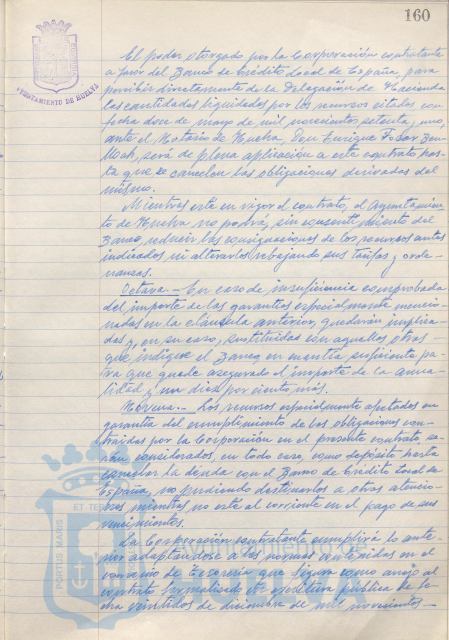 160
AYUNTAMIENTO DE HUELVA
El poder otorgado por la Corporación contratante
a favor del Banco de Crédito Local de España, para
percibir directamente de la Delegación de Hacienda
las cantidades liquidadas por los recursos citados con
fecha doce de mayo de mil novecientos setenta y uno,
ante el Notario de Huelva, Don Enrique
será de plena aplicación a este contrato has-
ta que se cancelen las obligaciones derivadas del
mismo.
Mientras esté en vigor el contrato, el Ayuntamien-
to de Huelva no podrá, sin consentimiento del
Banco, reducir las consignaciones de los recursos antes
indicados ni alterarlos rebajando sus tarifas y orde-
nanzas.
Octava.- En caso de insuficiencia comprobada
del importe de las garantías especialmente mencio-
nadas en la cláusula anterior, quedarán amplia-
das y, en su caso, sustituidas con aquellos otros
que indique el Banco en cuantía suficiente pa-
ra que quede asegurado el importe de la anua-
lidad y un diez por ciento más.
Novena.- Los recursos especialmente afectados en
garantía del cumplimiento de las obligaciones con-
traídas por la Corporación en el presente contrato, se-
rán considerados, en todo caso, como depósito hasta
cancelar la deuda con el Banco de Crédito Local de
España, no pudiendo destinarlos a otras atencio-
nes mientras no esté al corriente en el pago de sus
vencimientos.
La Corporación contratante cumplirá lo ante-
rior adaptándose a las normas contenidas en el
convenio de Tesorería que figura como anejo al
contrato formalizado en escritura pública de fe-
cha veintidos de diciembre de mil novecientos
PORTUS MARIS
ET TE